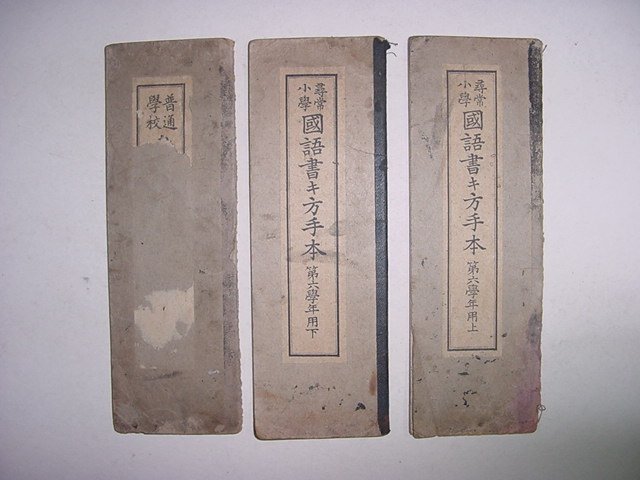 尋常
小學
國語書キ方手本
第六學年用上
尋常
小學
國語書キ方手本
第六學年用下
普通
學校